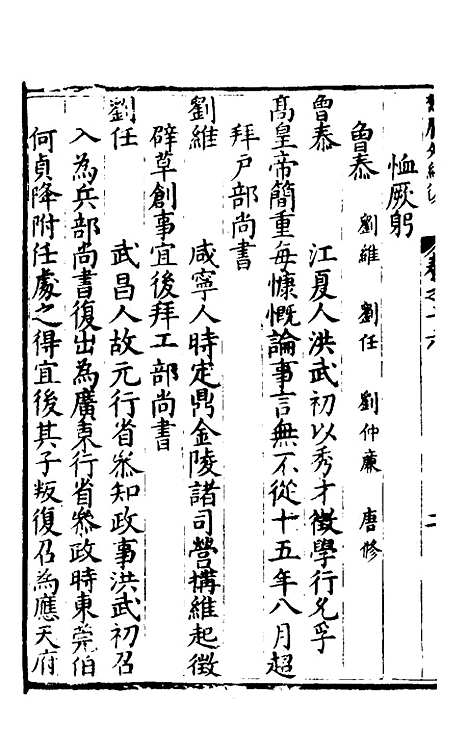 卷之十六 二
恤厥躬
魯泰 劉維 劉任 劉仲廉 唐修
魯泰 江夏人洪武初以秀才徵學行允孚
髙皇帝簡重每慷慨論事言無不從十五年八月超
拜户部尚書
劉維 咸寧人時定鼎金陵諸司營搆維起徵
辟草創事宜後拜工部尚書
劉任 武昌人故元行省叅知政事洪武初召
入為兵部尚書復出為廣東行省叅政時東莞伯
何貞降附任處之得宜後其子叛復召為應天府